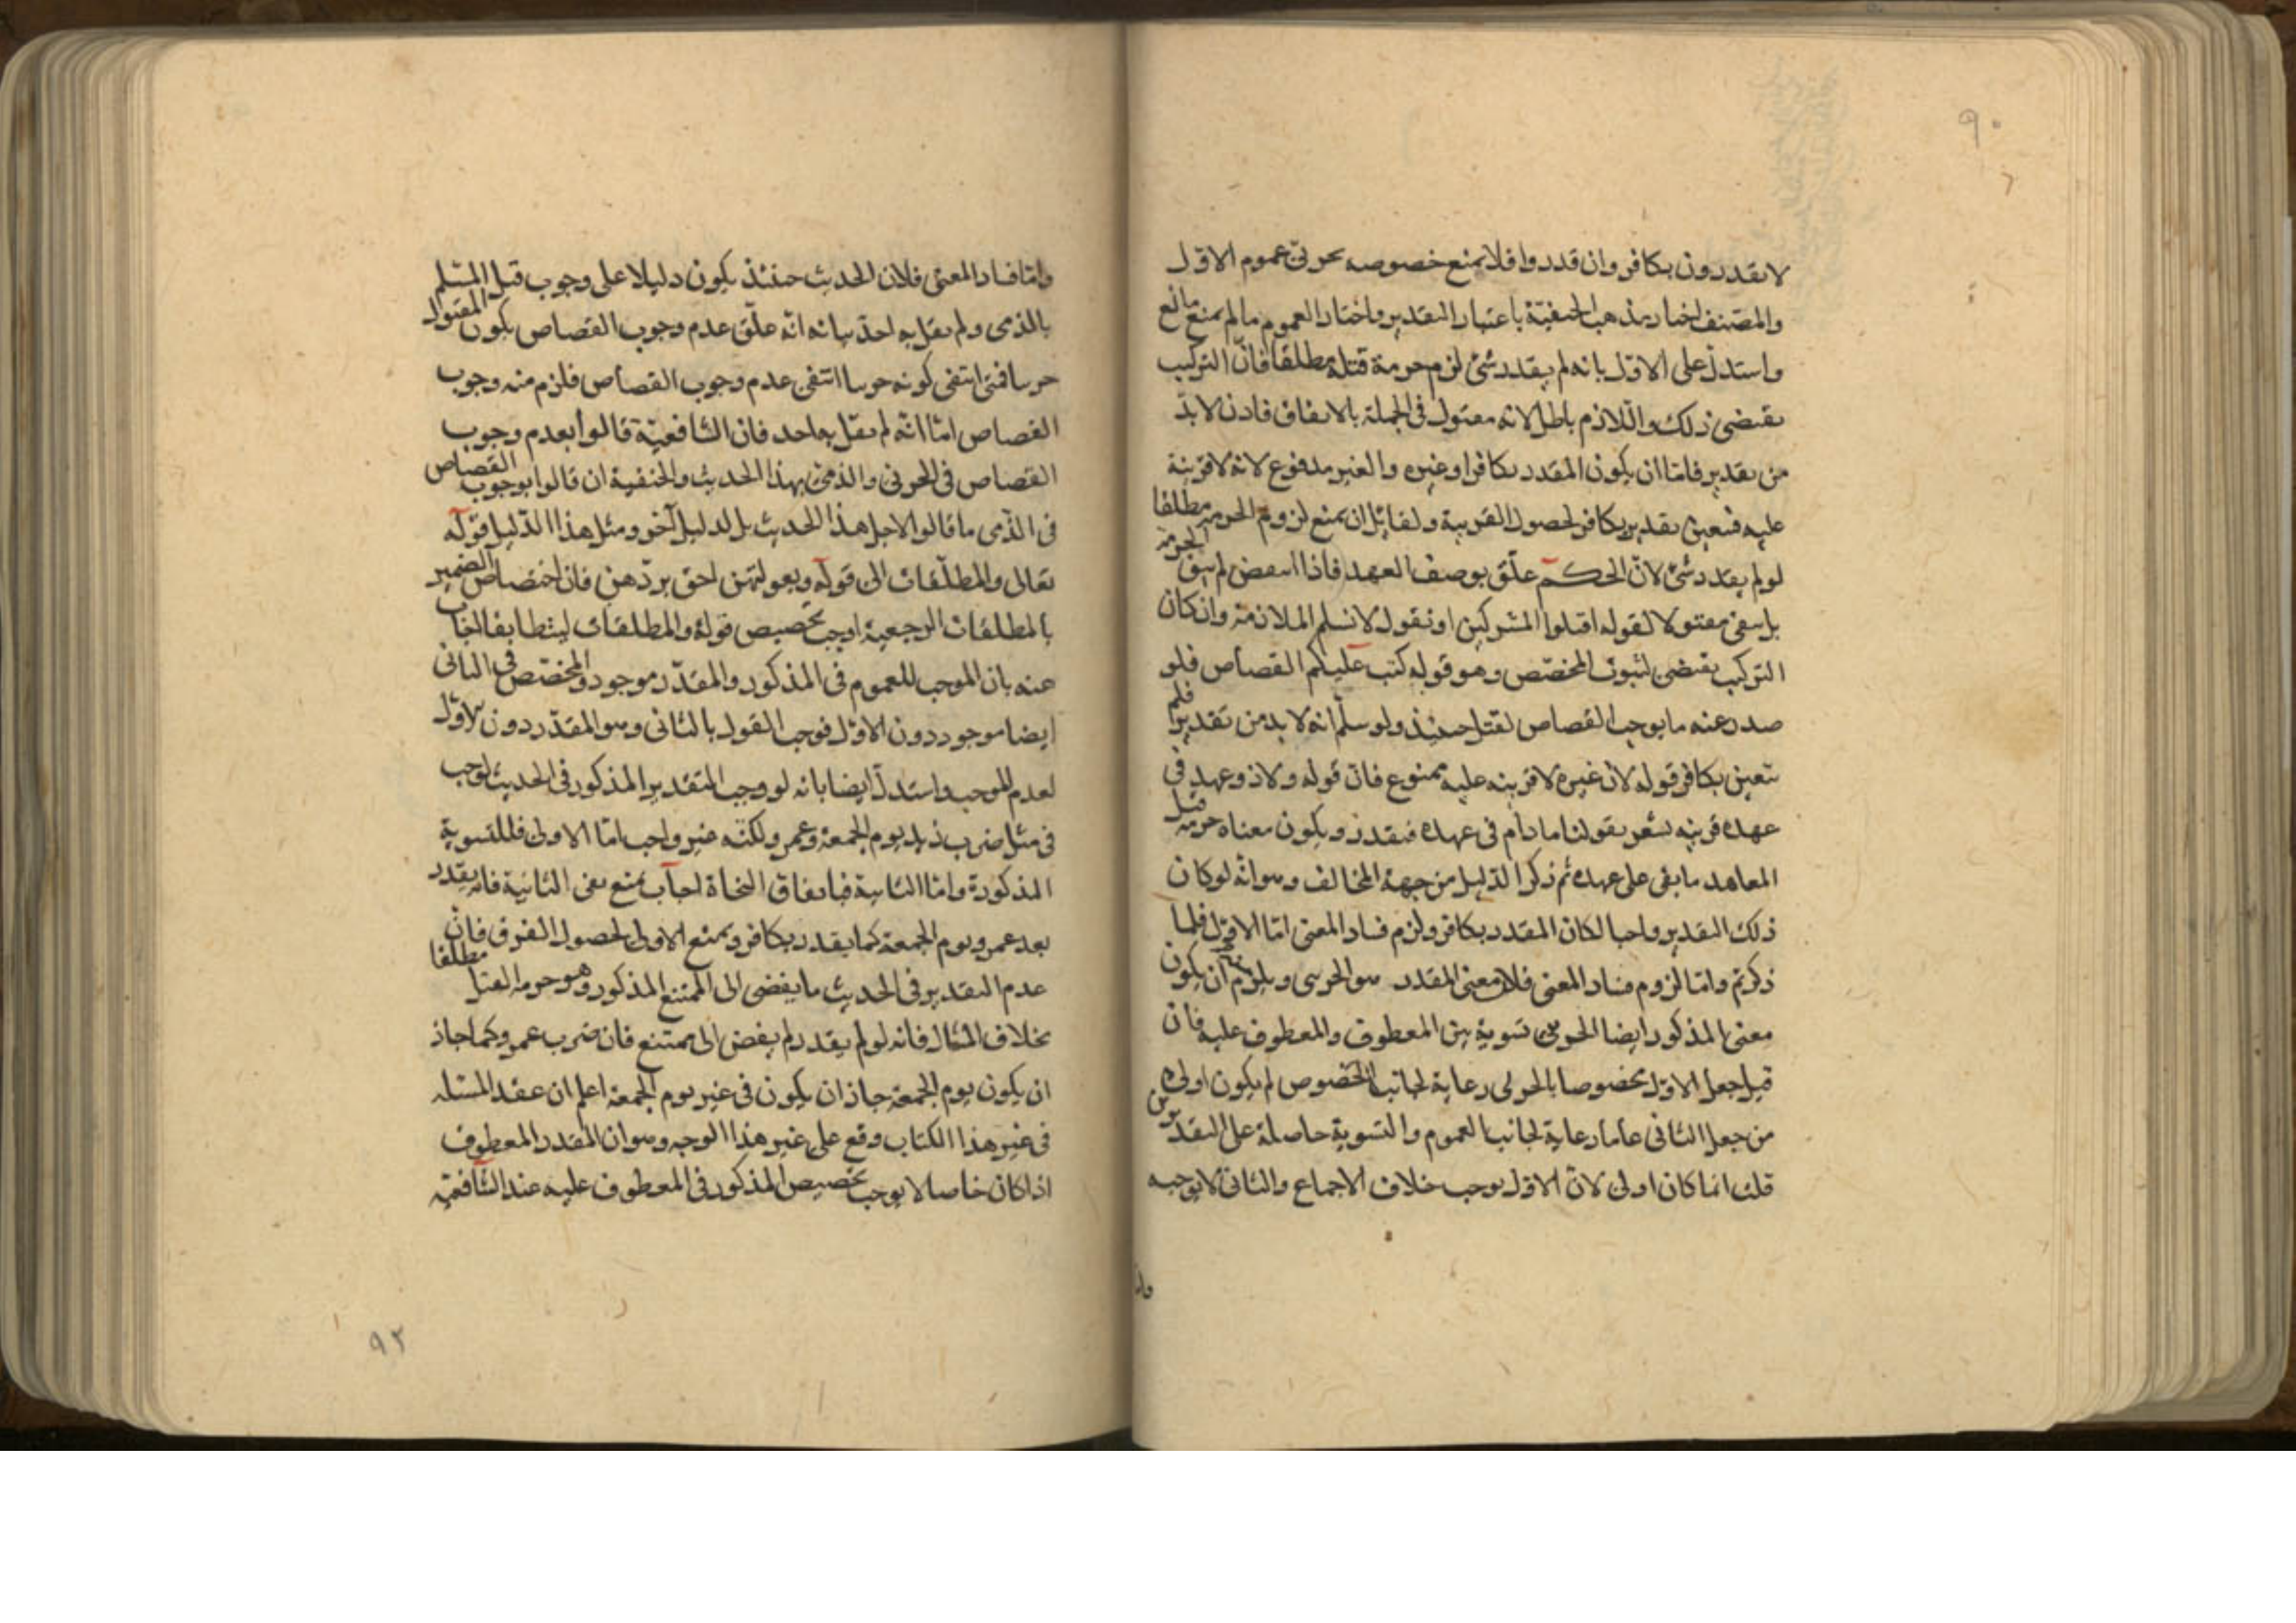 ٩٠
لا يقدرون بكافر وان قدروا فلا يمنع خصوصه بحربى عموم الاول
والمصنف اختار مذهب الحنفية باعتبار التقدير واختار العموم ما لم يمنع مانع
واستدل على الاول بانه لم يقدر شئ لزم حرمة قتله مطلقا فانّ التركيب
يقتضى ذلك واللازم باطل لانه مقتول فى الجملة بالاتفاق فاذن لا بدّ
من تقدير فامّا ان يكون المقدر بكافر او غيره والغير مدفوع لانه لا قرينة
عليه فتعين تقدير بكافر لحصول القرينة ولقائل ان يمنع لزوم الحرمة مطلقا
لو لم يقدر شئ لانّ الحكم علّق بوصف العهد فاذا انتقض لم تبق الحرمة
بل بقى مقتولا لقوله اقتلوا المشركين او نقول لا نسلم الملازمة وان كان
التركيب يقتضى لثبوت المخصّص وهو قوله كتب عليكم القصاص فلو
صدر عنه ما يوجب القصاص لقتل حينئذ ولو سلّم انه لا بد من تقدير فلم
تتعين بكافر قوله لان غيره لا قرينه عليه ممنوع فان قوله ولا ذو عهد فى
عهده قرينه تشعر بقولنا ما دام فى عهده فتقدر ويكون معناه حرمة قتل
المعاهد ما بقى على عهده ثم ذكر الدّليل من جهة المخالف وهو انّه لو كان
ذلك التقدير واجبا لكان المقدر بكافر ولزم فساد المعنى امّا الاوّل فلما
ذكرتم وامّا لزوم فساد المعنى فلان معنى المقدر هو الحربى ويلزم ان يكون
معنى المذكور ايضا الحربى تسوية بين المعطوف والمعطوف عليه فان
قيل جعل الاوّل مخصوصا بالحربى رعاية لجانب الخصوص لم يكون اولى
من جعل الثانى عاما رعاية لجانب العموم والتسوية حاصلة على التقديرين
قلت انما كان اولى لانّ الاوّل يوجب خلاف الاجماع والثانى لا يوجبه
وامّا
وامّا فساد المعنى فلان الحديث حينئذ يكون دليلا على وجوب قتل المسلم
بالذمى ولم يقل به احد بيانه انّه علّق عدم وجوب القصاص بكون المقتول
حربيا فمتى انتفى كونه حربيا انتفى عدم وجوب القصاص فلزم منه وجوب
القصاص امّا انّه لم يقل به احد فان الشافعيّة قالوا بعدم وجوب
القصاص فى الحربى والذمّى بهذا الحديث والحنفية ان قالوا بوجوب القصاص
فى الذّمى ما قالوا لاجل هذا الحديث بل لدليل آخر ومثل هذا الدّليل قوله
تعالى والمطلّقات الى قوله وبعولتهن احق بردّهن فان اختصاص الضمير
بالمطلقات الرجعية اوجب تخصيص قوله والمطلقات ليتطابقا اجاب
عنه بان الموجب للعموم فى المذكور والمقدّر موجود والمخصّص فى الثانى
ايضا موجود دون الاوّل فوجب القول بالثانى وهو المقدّر دون الاوّل
لعدم الموجب واستدلّ ايضا بانه لو وجب التقدير المذكور فى الحديث لوجب
فى مثل ضرب زيد يوم الجمعة وعمر ولكنّه غير واجب امّا الاولى فللتسوية
المذكورة وامّا الثانية فباتفاق النحاة اجاب بمنع نفى الثانية فانه يقدر
بعد عمر ويوم الجمعة كما يقدر بكافر وبمنع الاولى لحصول الفرق فانّ
عدم التقدير فى الحديث ما يفضى الى الممتنع المذكور وهو حرمة القتل مطلقا
بخلاف المثال فانه لو لم يقدر لم يفض الى ممتنع فان ضرب عمرو كما جاز
ان يكون يوم الجمعة جاز ان يكون فى غير يوم الجمعة اعلم ان عقد المسئلة
فى غير هذا الكتاب وقع على غير هذا الوجه وهو ان المقدر المعطوف
اذا كان خاصا لا يوجب تخصيص المذكور فى المعطوف عليه عند الشافعيّة
٩٢